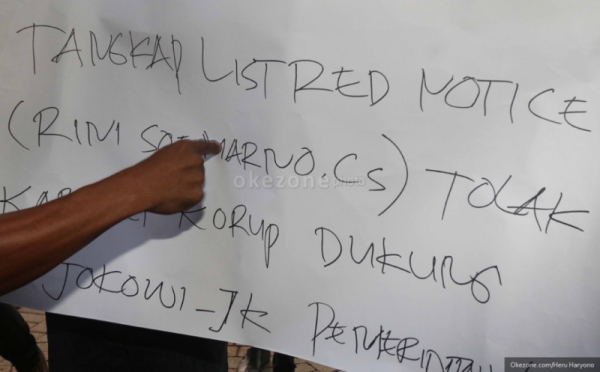 TANGKAP LIST RED NOTICE
(RINI SOEMARNO.CS) TOLAK
KORUP DUKUNG
JOKOWI-JK
okezone
Okezone.com/Heru Haryono